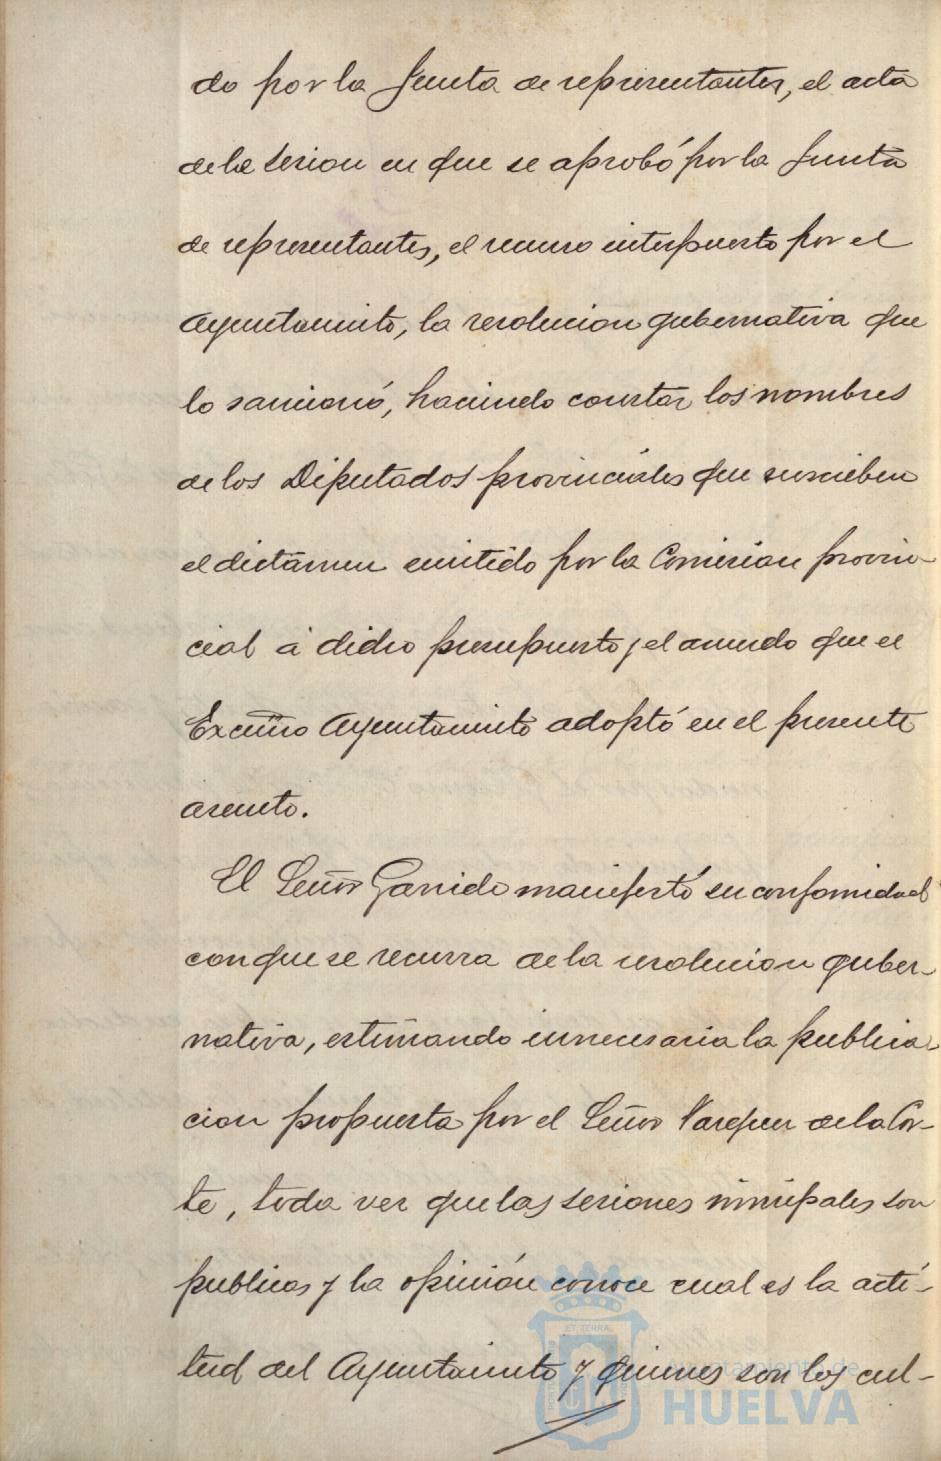 do por la Junta de representantes, el acta
de la sesion en que se aprobó por la Junta
de representantes, el recurso interpuesto por el
Ayuntamiento, la resolucion gubernativa que
lo sancionó, haciendo constar los nombres
de los Diputados provinciales que suscriben
el dictámen emitido por la Comision provin-
cial á dicho presupuesto y el acuerdo que el
Excmo Ayuntamiento adoptó en el presente
asunto.
El Señor Garrido manifestó su conformidad
con que se recurra de la resolucion guber-
nativa, estimando innecesaria la publica-
cion propuesta por el Señor Vazquez de la Cor-
te, toda vez que las sesiones municipales son
publicas y la opinión conoce cual es la acti-
tud del Ayuntamiento y quienes son los cul-
Ayuntamiento de
HUELVA